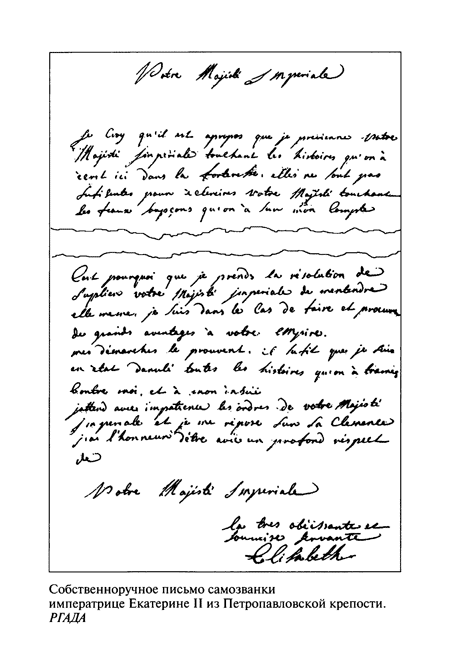 Votre Majesté Imperiale
Je Croy qu'il est apropos que je previenne votre
Majesté jmperiale touchant les histoires qu'on à
ecrit ici dans la forteresse, elles ne sont pas
sufisentes pour éclercires votre Majesté touchant
les faux supçons qu'on à sur mon Compte
C'est pourquoi que je prends la résolution de
suplier votre Majesté jmperiale de mentendre
elle meme, je suis dans le Cas de faire et procurer
de grands aventages à votre empire.
mes démarches le prouvent, il sufit que je suis
en état danulé toutes les histoires qu'on à tramées
Contre moi, et à mon insüe
jattend avec impatience les ordres de votre Majesté
jmperiale et je me repose sur sa Clemence
j'ai l'honneur d'être avec un profond respect
de
Votre Majesté Imperiale
la tres obéissante et
soumise servante
Elisabeth
Собственноручное письмо самозванки
императрице Екатерине II из Петропавловской крепости.
РГАДА